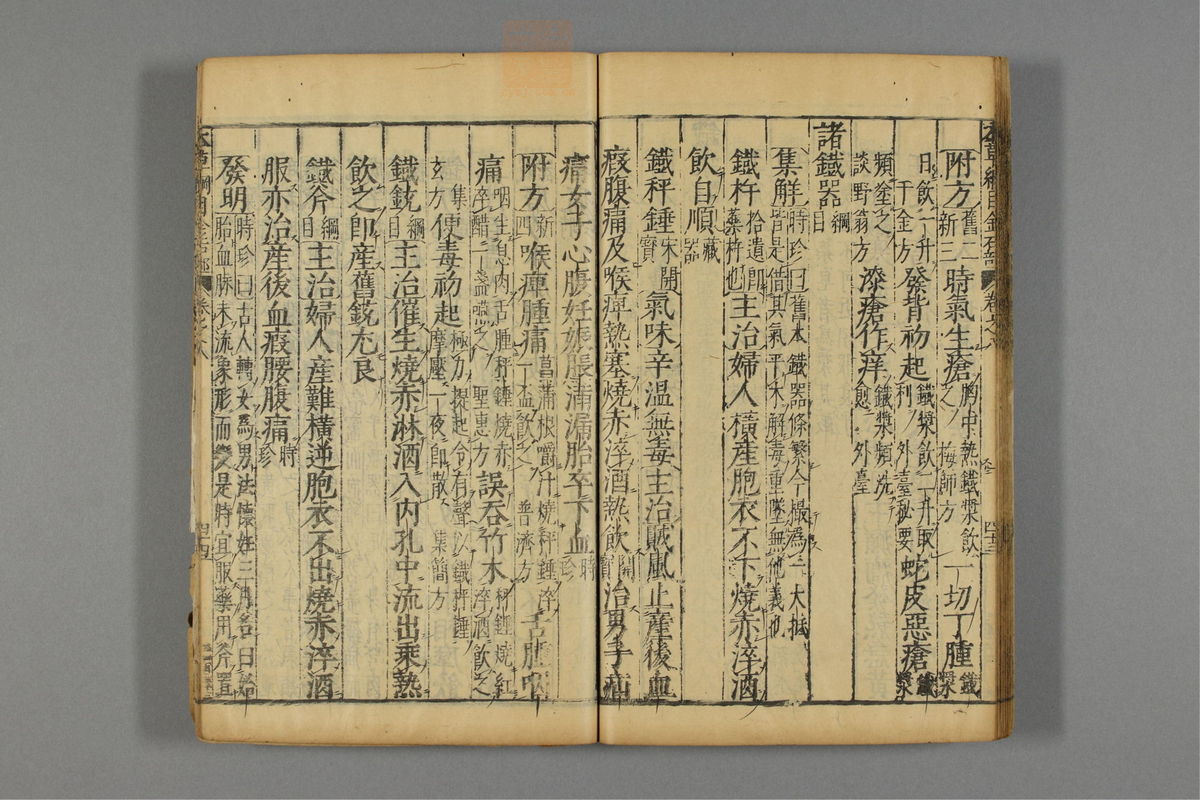 附方舊二新三時氣生瘡胸中熱鐵漿飲之梅師方一切丁腫鐵漿
日飲一升千金方發背初起鐵漿飲二升取利外臺秘要蛇皮惡瘡鐵漿
頻塗之談野翁方漆瘡作痒鐵漿頻洗愈外臺
諸鐵器綱目
集解時珍曰舊本鐵器條繁今撮為一大抵皆是借其氣平木解毒重墜無他義也
鐵杵拾遺即藥杵也主治婦人橫產胞衣不下燒赤淬酒
飲自順藏器
鐵秤錘宋開寶氣味辛溫無毒主治賊風止產後血
瘕腹痛及喉痺熱塞燒赤淬酒熱飲開寶治男子疝
癰女子心腹妊娠脹滿漏胎卒下血時珍
附方新四喉痺腫痛菖蒲根嚼汁燒秤錘淬一盃飲之普濟方舌腫咽
痛咽生息肉舌腫秤錘燒赤淬醋一盞嚥之聖惠方誤吞竹木秤錘燒紅淬酒飲之
集玄方便毒初起極力提起令有聲以鐵秤錘摩壓一夜即散集簡方
鐵銃綱目主治催生燒赤淋酒入內孔中流出乘熱
飲之即產舊銃尤良
鐵斧綱目主治婦人產難橫逆胞衣不出燒赤淬酒
服亦治產後血瘕腰腹痛時珍
發明時珍曰古人轉女為男法懷妊三月名曰始胎血脉未流象形而變是時宜服藥用斧置